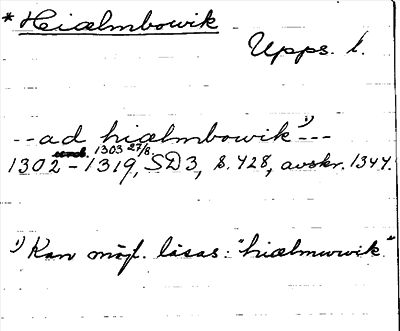 * Hiælmbowik
Upps. l.
-- ad hiælmbowik ¹) ---
1303 27/8.
1302 - 1319, SD3, s. 428, avskr. 1344.
¹) Kan möjl. läsas: "hiælmwwik"